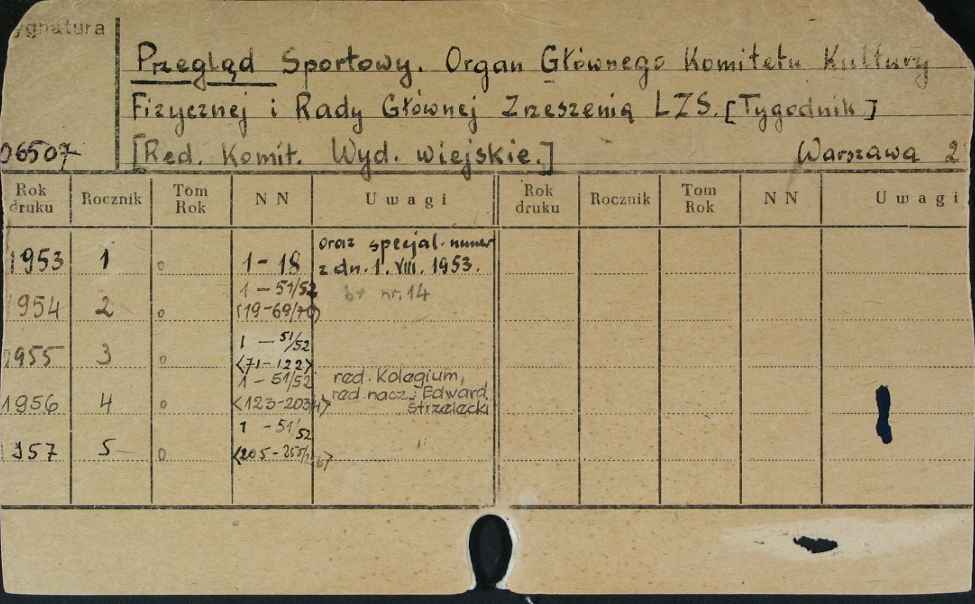 ygnatura
Przegląd Sportowy. Organ Głównego Komitetu Kultury
Fizycznej i Rady Głównej Zrzeszenia LZS. [Tygodnik]
06507 [Red. Komit. Wyd. wiejskie.] Warszawa 2
Rok druku Rocznik Tom Rok NN Uwagi Rok druku Rocznik Tom Rok NN Uwagi
oraz specjal. numer
1953 1 1-18 z dn. 1. VIII. 1953.
1-51/52 br nr. 14
1954 2 (19-69/70)
1-51/52
1955 3 <71-122>
1-51/52 red. Kolegium,
1956 4 <123-203/4> red. nacz. Edward
Strzelecki
1-51/52
1957 5 <205-